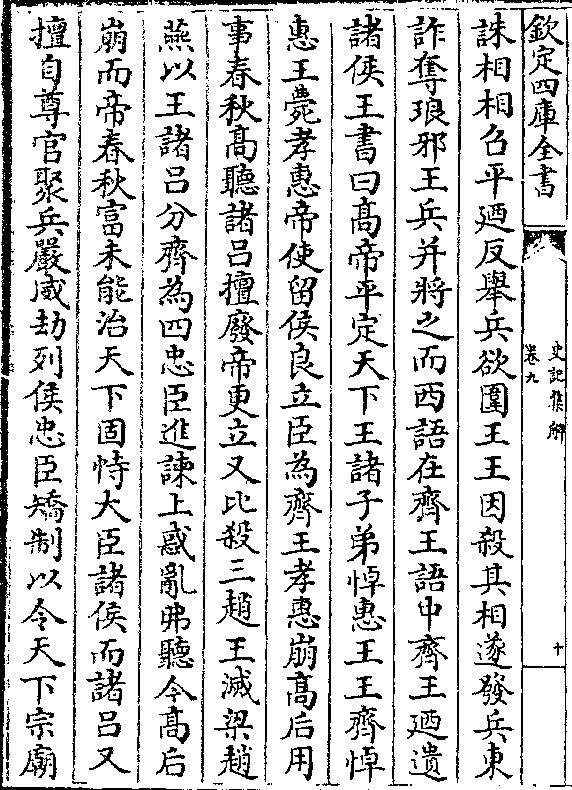 欽定四庫全書
史記集解
卷九
十
誅相相召平廼反舉兵欲圍王王因殺其相遂發兵東
詐奪琅邪王兵并將之而西語在齊王語中齊王廼遺
諸侯王書曰髙帝平定天下王諸子弟悼惠王王齊悼
惠王薨孝惠帝使留侯良立臣為齊王孝惠崩髙后用
事春秋髙聽諸吕擅廢帝更立又比殺三趙王滅梁趙
燕以王諸吕分齊為四忠臣進諫上惑亂弗聽今髙后
崩而帝春秋富未能治天下固恃大臣諸侯而諸吕又
擅自尊官聚兵嚴威劫列侯忠臣矯制以令天下宗廟